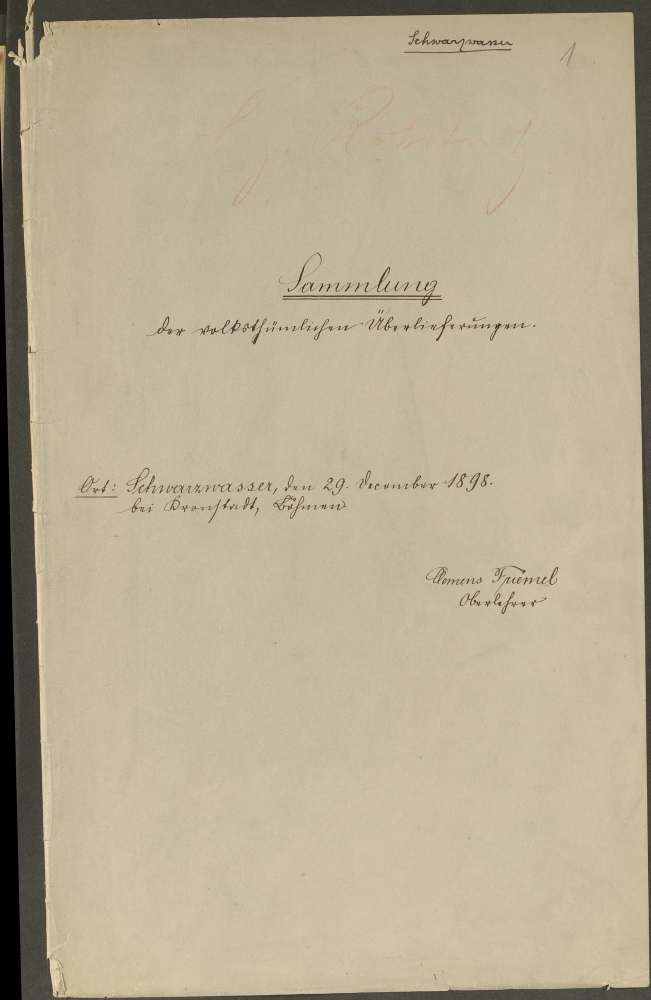 Schwarzwasser
1
Sammlung
der volksthümlichen Überlieferungen.
Ort: Schwarzwasser, den 29. December 1898.
bei Kronstadt, Böhmen
Clemens
Oberlehrer